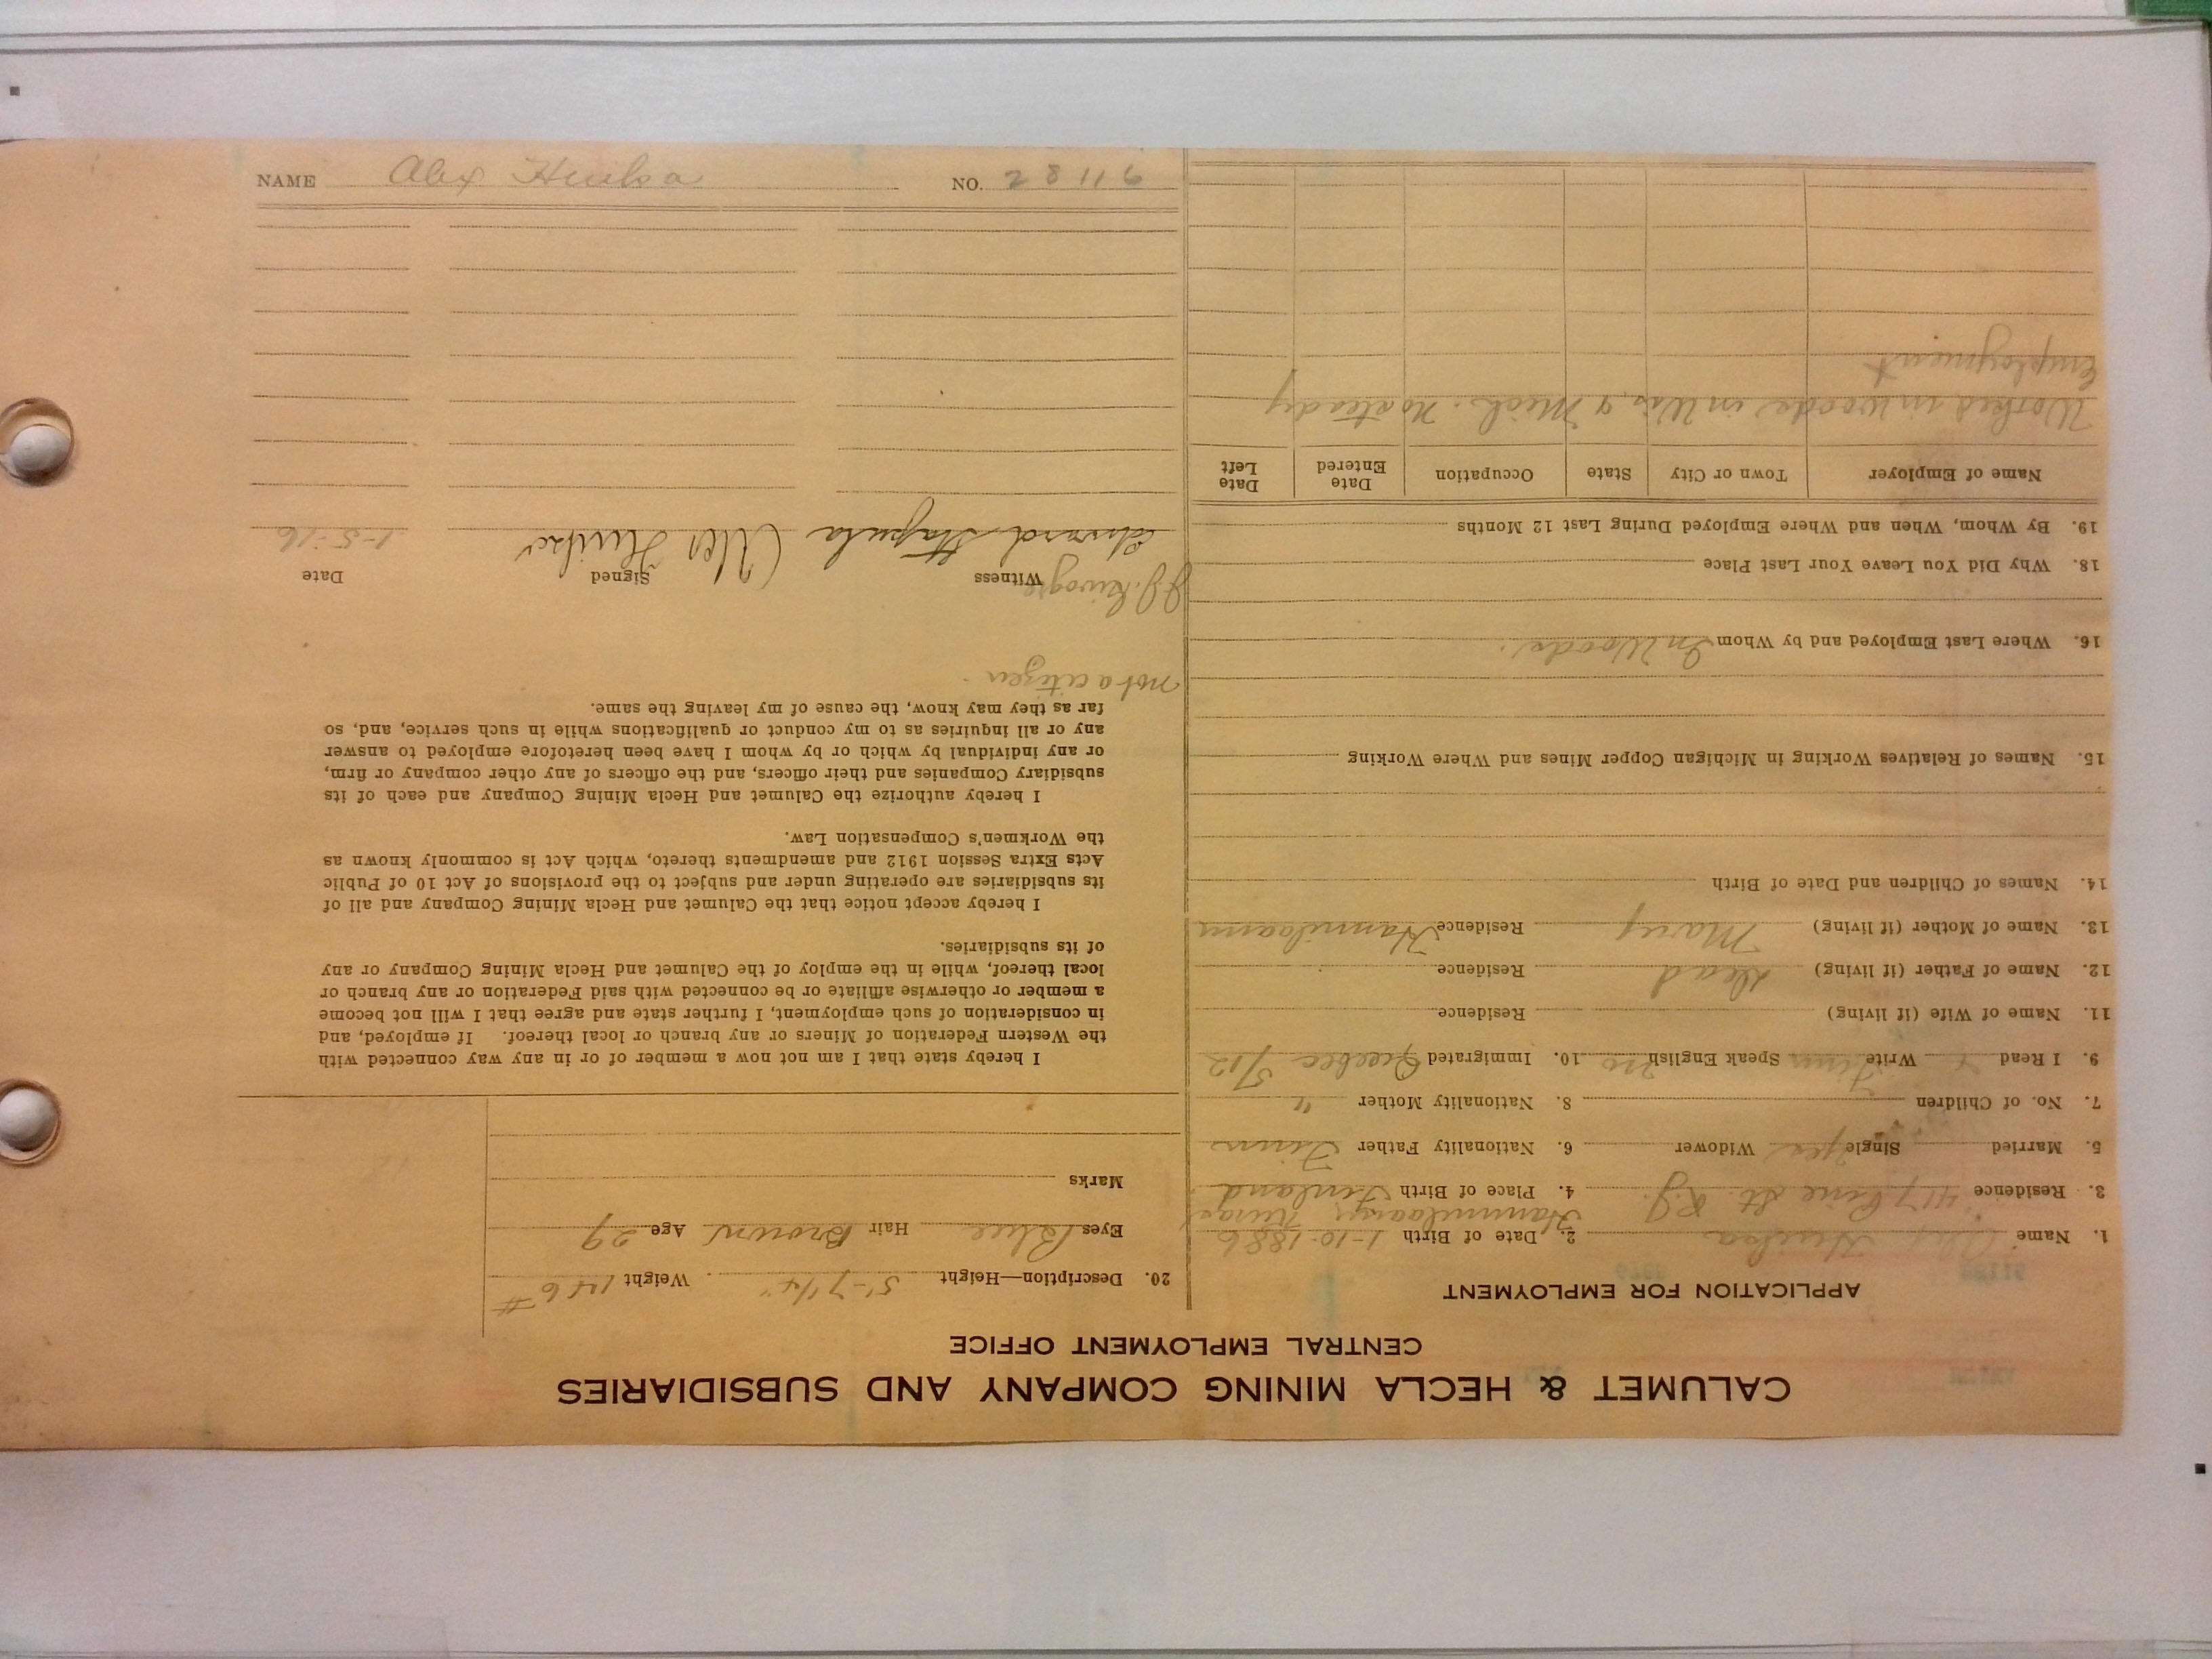 CALUMET & HECLA MINING COMPANY AND SUBSIDIARIES
CENTRAL EMPLOYMENT OFFICE
APPLICATION FOR EMPLOYMENT
1. Name Alex 2. Date of Birth 1-10-1886
3. Residence 417 Pine St. 4. Place of Birth Finland
5. Married Single yes Widower 6. Nationality Father Finn
7. No. of Children 8. Nationality Mother "
9. I Read Write Finn Speak English no 10. Immigrated Quebec 5/12
11. Name of Wife (if living) Residence
12. Name of Father (if living) Dead Residence
13. Name of Mother (if living) Mary Residence
14. Names of Children and Date of Birth
15. Names of Relatives Working in Michigan Copper Mines and Where Working
16. Where Last Employed and by Whom In Woods.
18. Why Did You Leave Your Last Place
19. By Whom, When and Where Employed During Last 12 Months
Name of Employer Town or City State Occupation Date Entered Date Left
Worked in woods in Wis. & Mich. No steady
employment
20. Description—Height 5'-7 1/4" Weight 146 #
Eyes Blue Hair Brown Age 29
Marks
I hereby state that I am not now a member of or in any way connected with
the Western Federation of Miners or any branch or local thereof. If employed, and
in consideration of such employment, I further state and agree that I will not become
a member or otherwise affiliate or be connected with said Federation or any branch or
local thereof, while in the employ of the Calumet and Hecla Mining Company or any
of its subsidiaries.
I hereby accept notice that the Calumet and Hecla Mining Company and all of
its subsidiaries are operating under and subject to the provisions of Act 10 of Public
Acts Extra Session 1912 and amendments thereto, which Act is commonly known as
the Workmen's Compensation Law.
I hereby authorize the Calumet and Hecla Mining Company and each of its
subsidiary Companies and their officers, and the officers of any other company or firm,
or any individual by which or by whom I have been heretofore employed to answer
any or all inquiries as to my conduct or qualifications while in such service, and, so
far as they may know, the cause of my leaving the same.
not a citizen.
Witness Signed Date
Edward Alex 1-5-16
NAME Alex NO. 28116